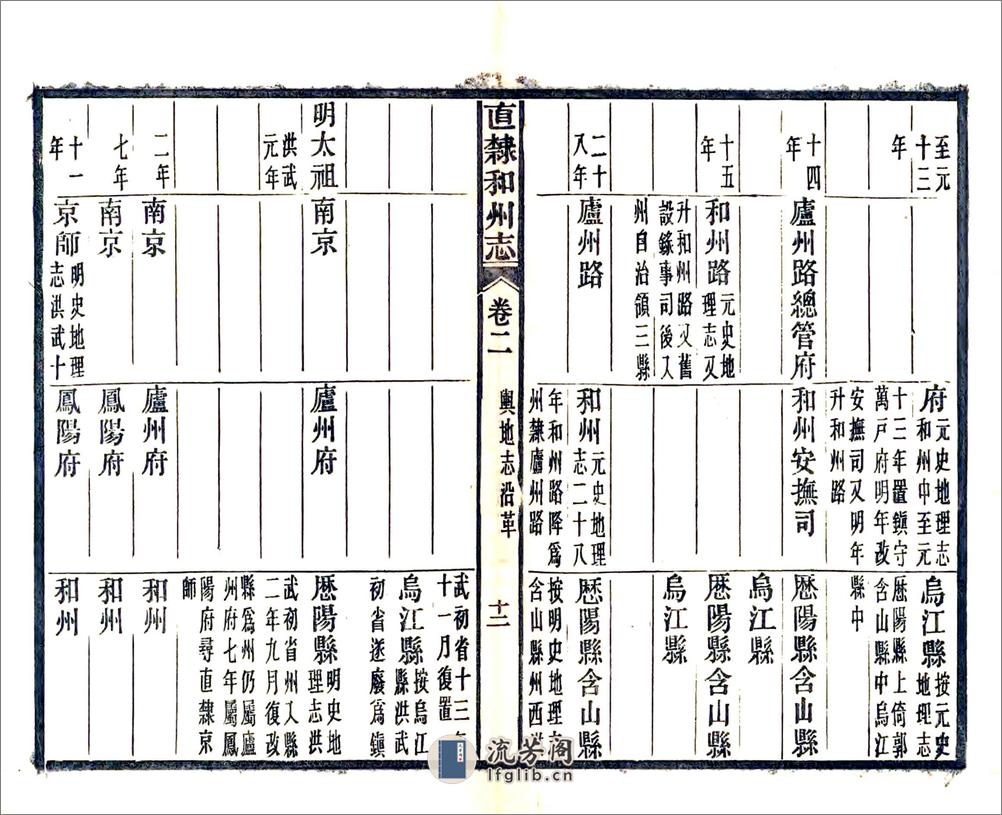 至元
十三
年
府元史地理志
和州中至元
十三年置鎮守
萬戶府明年改
安撫司又明年
升和州路
烏江縣按元史
地理志
厯陽縣上倚郭
含山縣中烏江
縣中
十四
年
廬州路總管府
和州安撫司
厯陽縣含山縣
烏江縣
十五
年
和州路元史地
理志又
升和州路又舊
設錄事司後又
州自治領三縣
厯陽縣含山縣
烏江縣
二十
八年
廬州路
和州元史地理
志二十八
年和州路降爲
州隸廬州路
厯陽縣含山縣
按明史地理
含山縣州西洪
直隸和州志
卷二
輿地志沿革
十二
武初省十三年
十一月復置
烏江縣按烏江
縣洪武
初省遂廢爲鎮
明太祖
洪武
元年
南京
廬州府
厯陽縣明史地
理志洪
武初省州入縣
二年九月復改
縣爲州仍屬廬
州府七年屬鳳
陽府尋直隸京
師
二年
南京
廬州府
和州
七年
南京
鳳陽府
和州
十一
年
京師明史地理
志洪武十
鳳陽府
和州
流芳阁
lfglib.cn